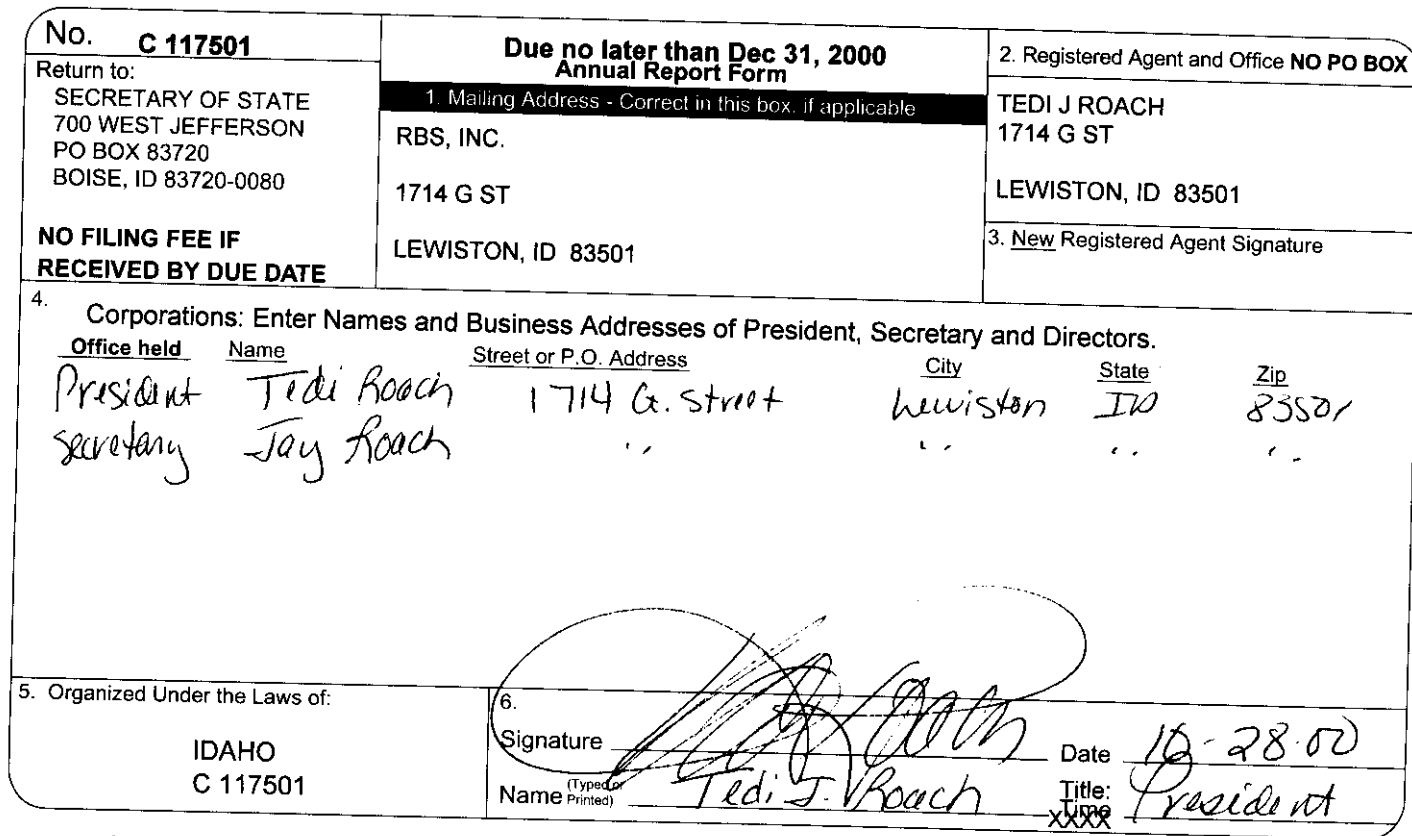 No. C 117501
Return to:
SECRETARY OF STATE
700 WEST JEFFERSON
PO BOX 83720
BOISE, ID 83720-0080
NO FILING FEE IF
RECEIVED BY DUE DATE
Due no later than Dec 31, 2000
Annual Report Form
1. Mailing Address - Correct in this box. if applicable
RBS, INC.
1714 G ST
LEWISTON, ID 83501
2. Registered Agent and Office NO PO BOX
TEDI J ROACH
1714 G ST
LEWISTON, ID 83501
3. New Registered Agent Signature
4.
Corporations: Enter Names and Business Addresses of President, Secretary and Directors.
Office held Name Street or P.O. Address City State Zip
President Tedi Roach 1714 G. Street Lewiston ID 83501
Secretary Jay Roach " " " "
5. Organized Under the Laws of:
IDAHO
C 117501
6.
Signature Roach Date 10-28-00
Name (Typed or Printed) Tedi J. Roach Title: President